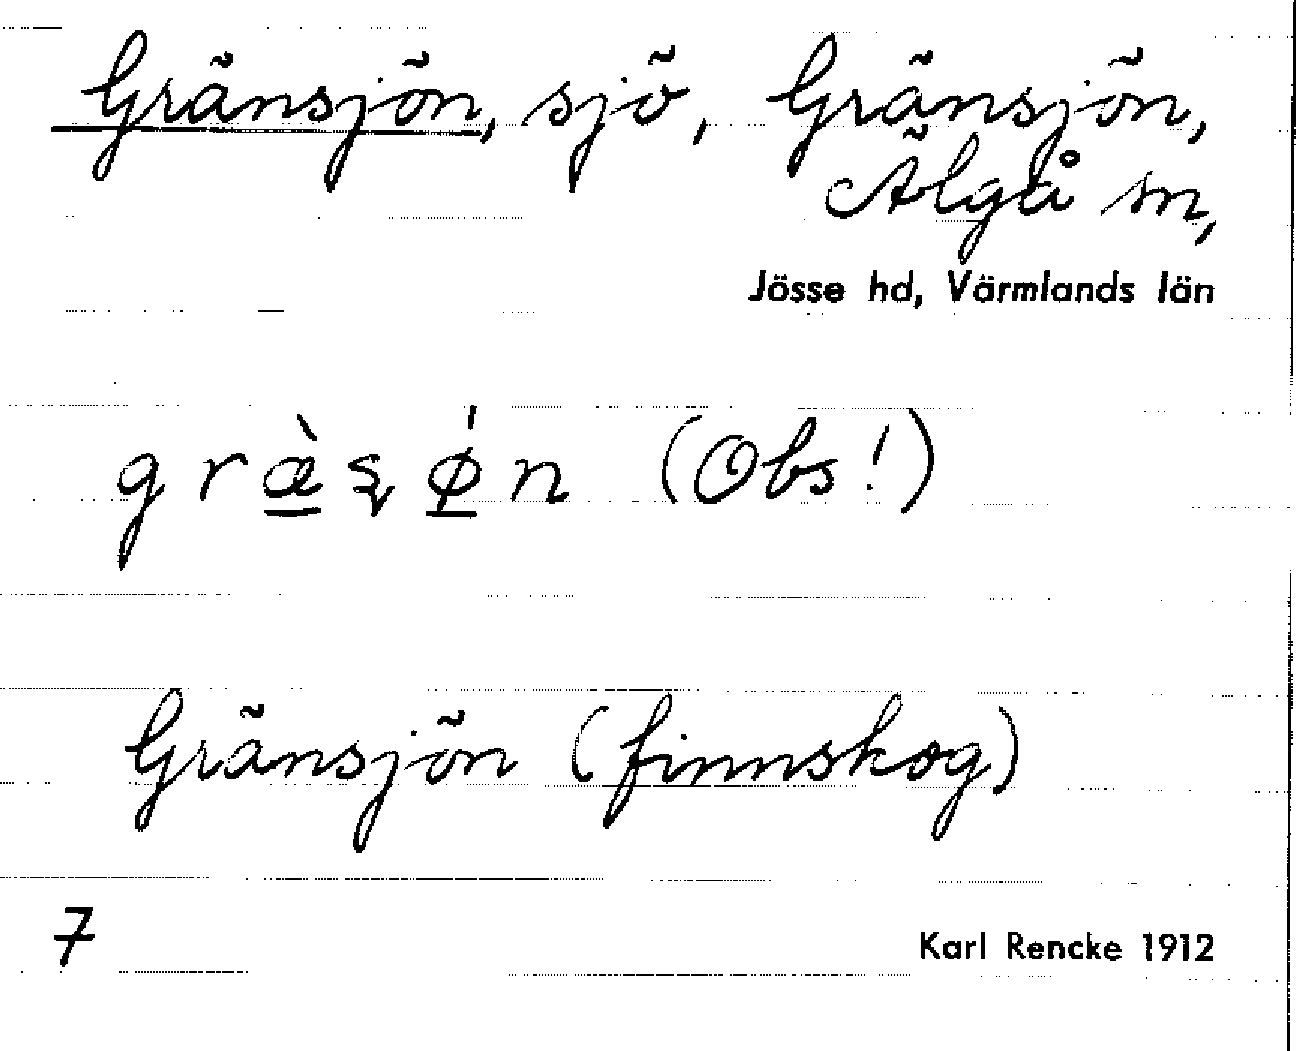 Gränsjön, sjö, Gränsjön,
Älgå sn,
Jösse hd, Värmlands län
græ̲̀ʂǿ̲n (Obs!)
Gränsjön (finnskog)
7
Karl Rencke 1912